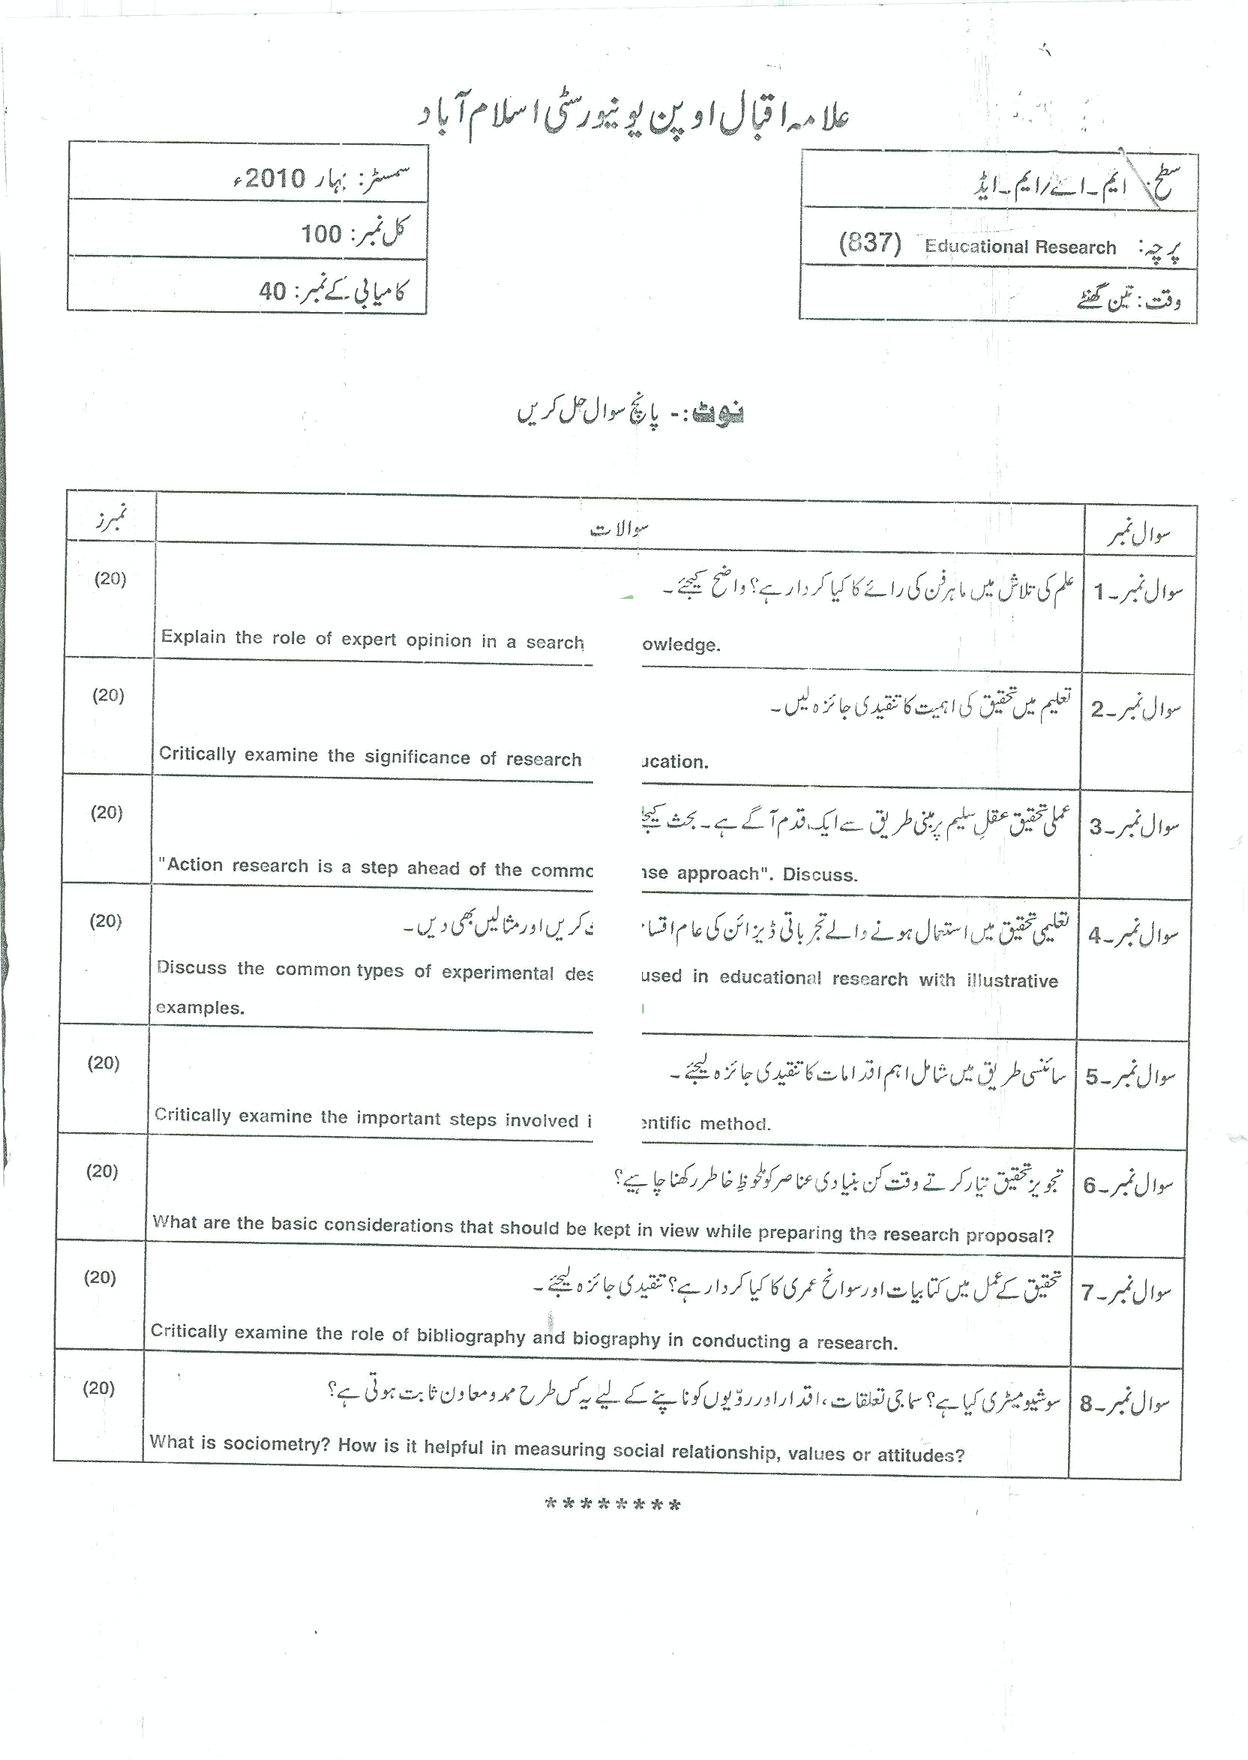 علامہ اقبال اوپن یونیورسٹی اسلام آباد
سطح: ایم۔اے/ایم۔ایڈ
سمسٹر: بہار 2010ء
پرچہ: Educational Research (837)
کل نمبر: 100
وقت: تین گھنٹے
کامیابی کے نمبر: 40
نوٹ:- پانچ سوال حل کریں
سوال نمبر سوالات نمبرز
سوال نمبر۔1 علم کی تلاش میں ماہر فن کی رائے کا کیا کردار ہے؟ واضح کیجئے۔ (20)
Explain the role of expert opinion in a search
سوال نمبر۔2 تعلیم میں تحقیق کی اہمیت کا تنقیدی جائزہ لیں۔ (20)
Critically examine the significance of research
سوال نمبر۔3 عملی تحقیق عقلِ سلیم پر مبنی طریق سے ایک قدم آگے ہے۔ بحث (20)
"Action research is a step ahead of the approach". Discuss.
سوال نمبر۔4 تعلیمی تحقیق میں استعمال ہونے والے تجرباتی ڈیزائن کی عام کریں اور مثالیں بھی دیں۔ (20)
Discuss the common types of experimental used in educational research with illustrative
examples.
سوال نمبر۔5 سائنسی طریق میں شامل اہم اقدامات کا تنقیدی جائزہ لیجئے۔ (20)
Critically examine the important steps involved method.
سوال نمبر۔6 تجویز تحقیق تیار کرتے وقت کن بنیادی عناصر کو ملحوظِ خاطر رکھنا چاہیے؟ (20)
What are the basic considerations that should be kept in view while preparing the research proposal?
سوال نمبر۔7 تحقیق کے عمل میں کتابیات اور سوانح عمری کا کیا کردار ہے؟ تنقیدی جائزہ لیجئے۔ (20)
Critically examine the role of bibliography and biography in conducting a research.
سوال نمبر۔8 سوشیومیٹری کیا ہے؟ سماجی تعلقات، اقدار اور رویّوں کو ناپنے کے لیے یہ کس طرح ممد و معاون ثابت ہوتی ہے؟ (20)
What is sociometry? How is it helpful in measuring social relationship, values or attitudes?
********